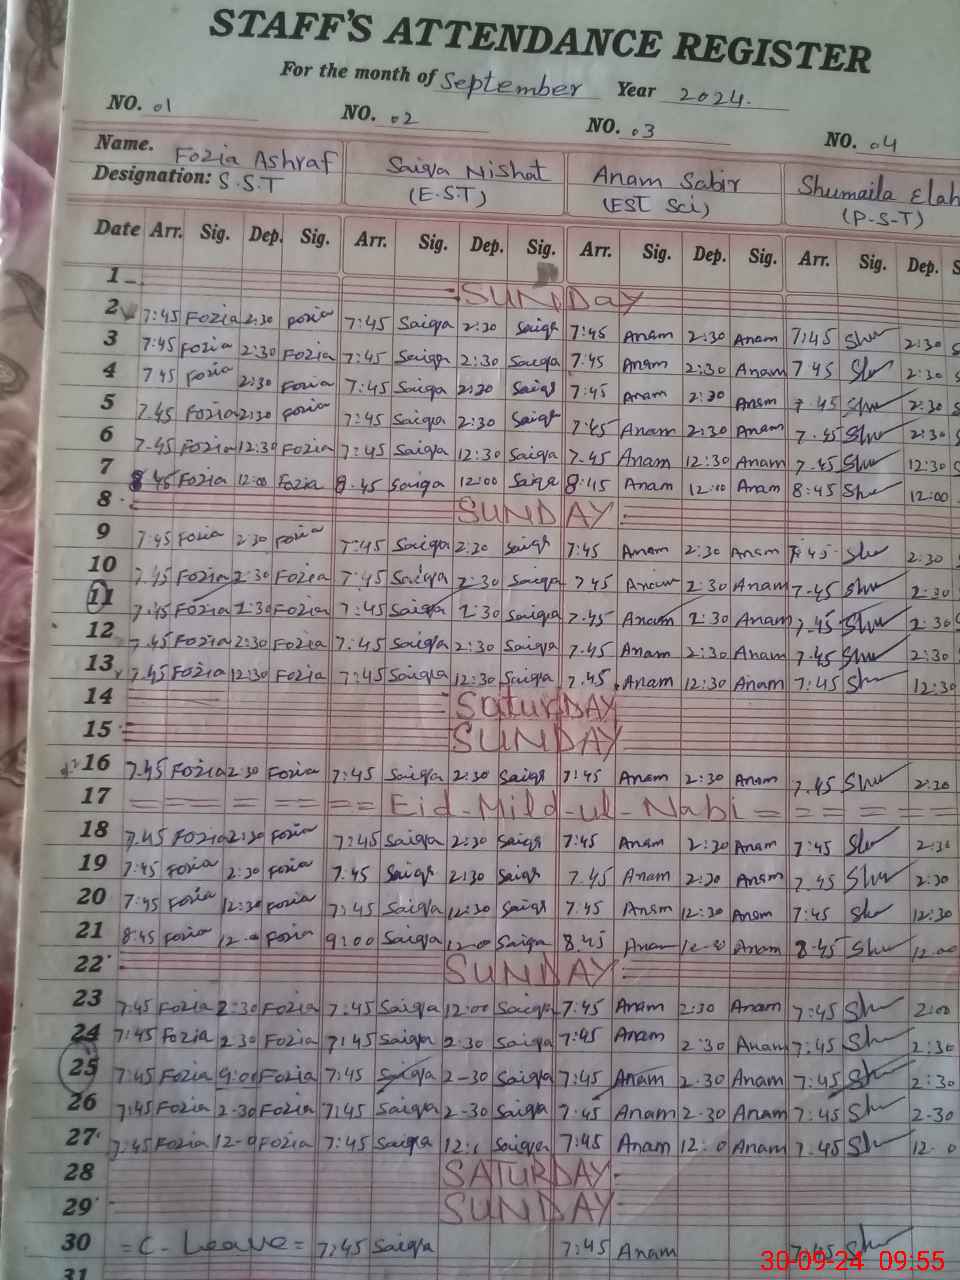 STAFF'S ATTENDANCE REGISTER
For the month of September Year 2024.
NO. 01 NO. 02 NO. 03 NO. 04
Name. Fozia Ashraf Saiqa Nishat Anam Sabir Shumaila Elah
Designation: S.S.T (E.S.T) (EST Sci) (P-S-T)
Date Arr. Sig. Dep. Sig. Arr. Sig. Dep. Sig. Arr. Sig. Dep. Sig. Arr. Sig. Dep. S
1 SUNDAY
2 7:45 Fozia 2:30 Fozia 7:45 Saiqa 2:30 Saiqa 7:45 Anam 2:30 Anam 7:45 Shu 2:30 S
3 7:45 Fozia 2:30 Fozia 7:45 Saiqa 2:30 Saiqa 7:45 Anam 2:30 Anam 7 45 Shu 2:30 S
4 7 45 Fozia 2:30 Fozia 7:45 Saiqa 2:30 Saiqa 7:45 Anam 2:30 Anam 7.45 Shu 2:30 S
5 7.45 Fozia 2:30 Fozia 7:45 Saiqa 2:30 Saiqa 7:45 Anam 2:30 Anam 7.45 Shu 2:30 S
6 7.45 Fozia 12:30 Fozia 7:45 Saiqa 12:30 Saiqa 7.45 Anam 12:30 Anam 7.45 Shu 12:30 S
7 8 45 Fozia 12:00 Fozia 8.45 Saiqa 12:00 Saiqa 8:45 Anam 12:00 Anam 8:45 Shu 12:00
8 SUNDAY
9 7:45 Fozia 2:30 Fozia 7:45 Saiqa 2:30 Saiqa 7:45 Anam 2:30 Anam 7:45 Shu 2:30
10 7.45 Fozia 2:30 Fozia 7:45 Saiqa 2:30 Saiqa 7 45 Anam 2:30 Anam 7.45 Shu 2:30
11 7.45 Fozia 2:30 Fozia 7:45 Saiqa 2:30 Saiqa 7.45 Anam 2:30 Anam 7.45 Shu 2:30
12 7.45 Fozia 2:30 Fozia 7:45 Saiqa 2:30 Saiqa 7.45 Anam 2:30 Anam 7.45 Shu 2:30
13 7.45 Fozia 12:30 Fozia 7:45 Saiqa 12:30 Saiqa 7.45 Anam 12:30 Anam 7:45 Shu 12:30
14 SaturDAY
15 SUNDAY
16 7.45 Fozia 2:30 Fozia 7:45 Saiqa 2:30 Saiqa 7:45 Anam 2:30 Anam 7.45 Shu 2:30
17 = = = = = = = Eid-Mild-ul-Nabi = = = = =
18 7.45 Fozia 2:30 Fozia 7:45 Saiqa 2:30 Saiqa 7:45 Anam 2:30 Anam 7:45 Shu 2:30
19 7:45 Fozia 2:30 Fozia 7.45 Saiqa 2:30 Saiqa 7.45 Anam 2:30 Anam 7.45 Shu 2:30
20 7:45 Fozia 12:30 Fozia 7:45 Saiqa 12:30 Saiqa 7:45 Anam 12:30 Anam 7:45 Shu 12:30
21 8:45 Fozia Fozia 9:00 Saiqa Saiqa 8.45 Anam Anam 8.45 Shu 12.00
22 SUNDAY
23 7:45 Fozia 2:30 Fozia 7:45 Saiqa 12:00 Saiqa 7:45 Anam 2:30 Anam 7:45 Shu 2:00
24 7:45 Fozia 2 30 Fozia 7:45 Saiqa 2.30 Saiqa 7:45 Anam 2:30 Anam 7:45 Shu 2:30
25 7:45 Fozia 9:00 Fozia 7:45 Saiqa 2-30 Saiqa 7:45 Anam 2.30 Anam 7:45 Shu 2:30
26 7:45 Fozia 2-30 Fozia 7:45 Saiqa 2-30 Saiqa 7:45 Anam 2-30 Anam 7:45 Shu 2-30
27 7:45 Fozia 12-0 Fozia 7:45 Saiqa Saiqa 7:45 Anam 12:0 Anam 7.45 Shu 12.0
28 SATURDAY
29 SUNDAY
30 = C - Leave = 7:45 Saiqa 7:45 Anam 7:45 Shu
31
30-09-24 09:55